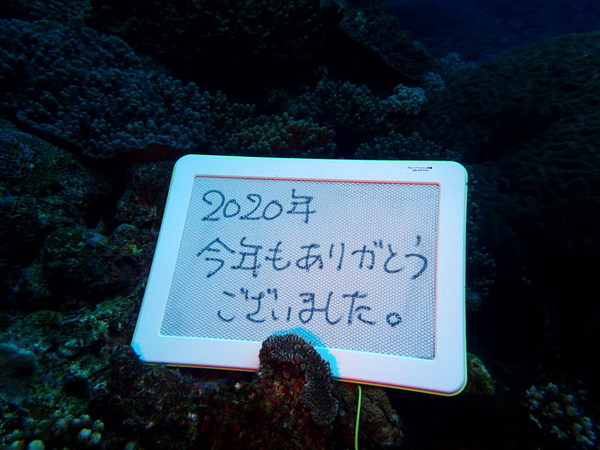 2020年
今年もありがとう
ございました。